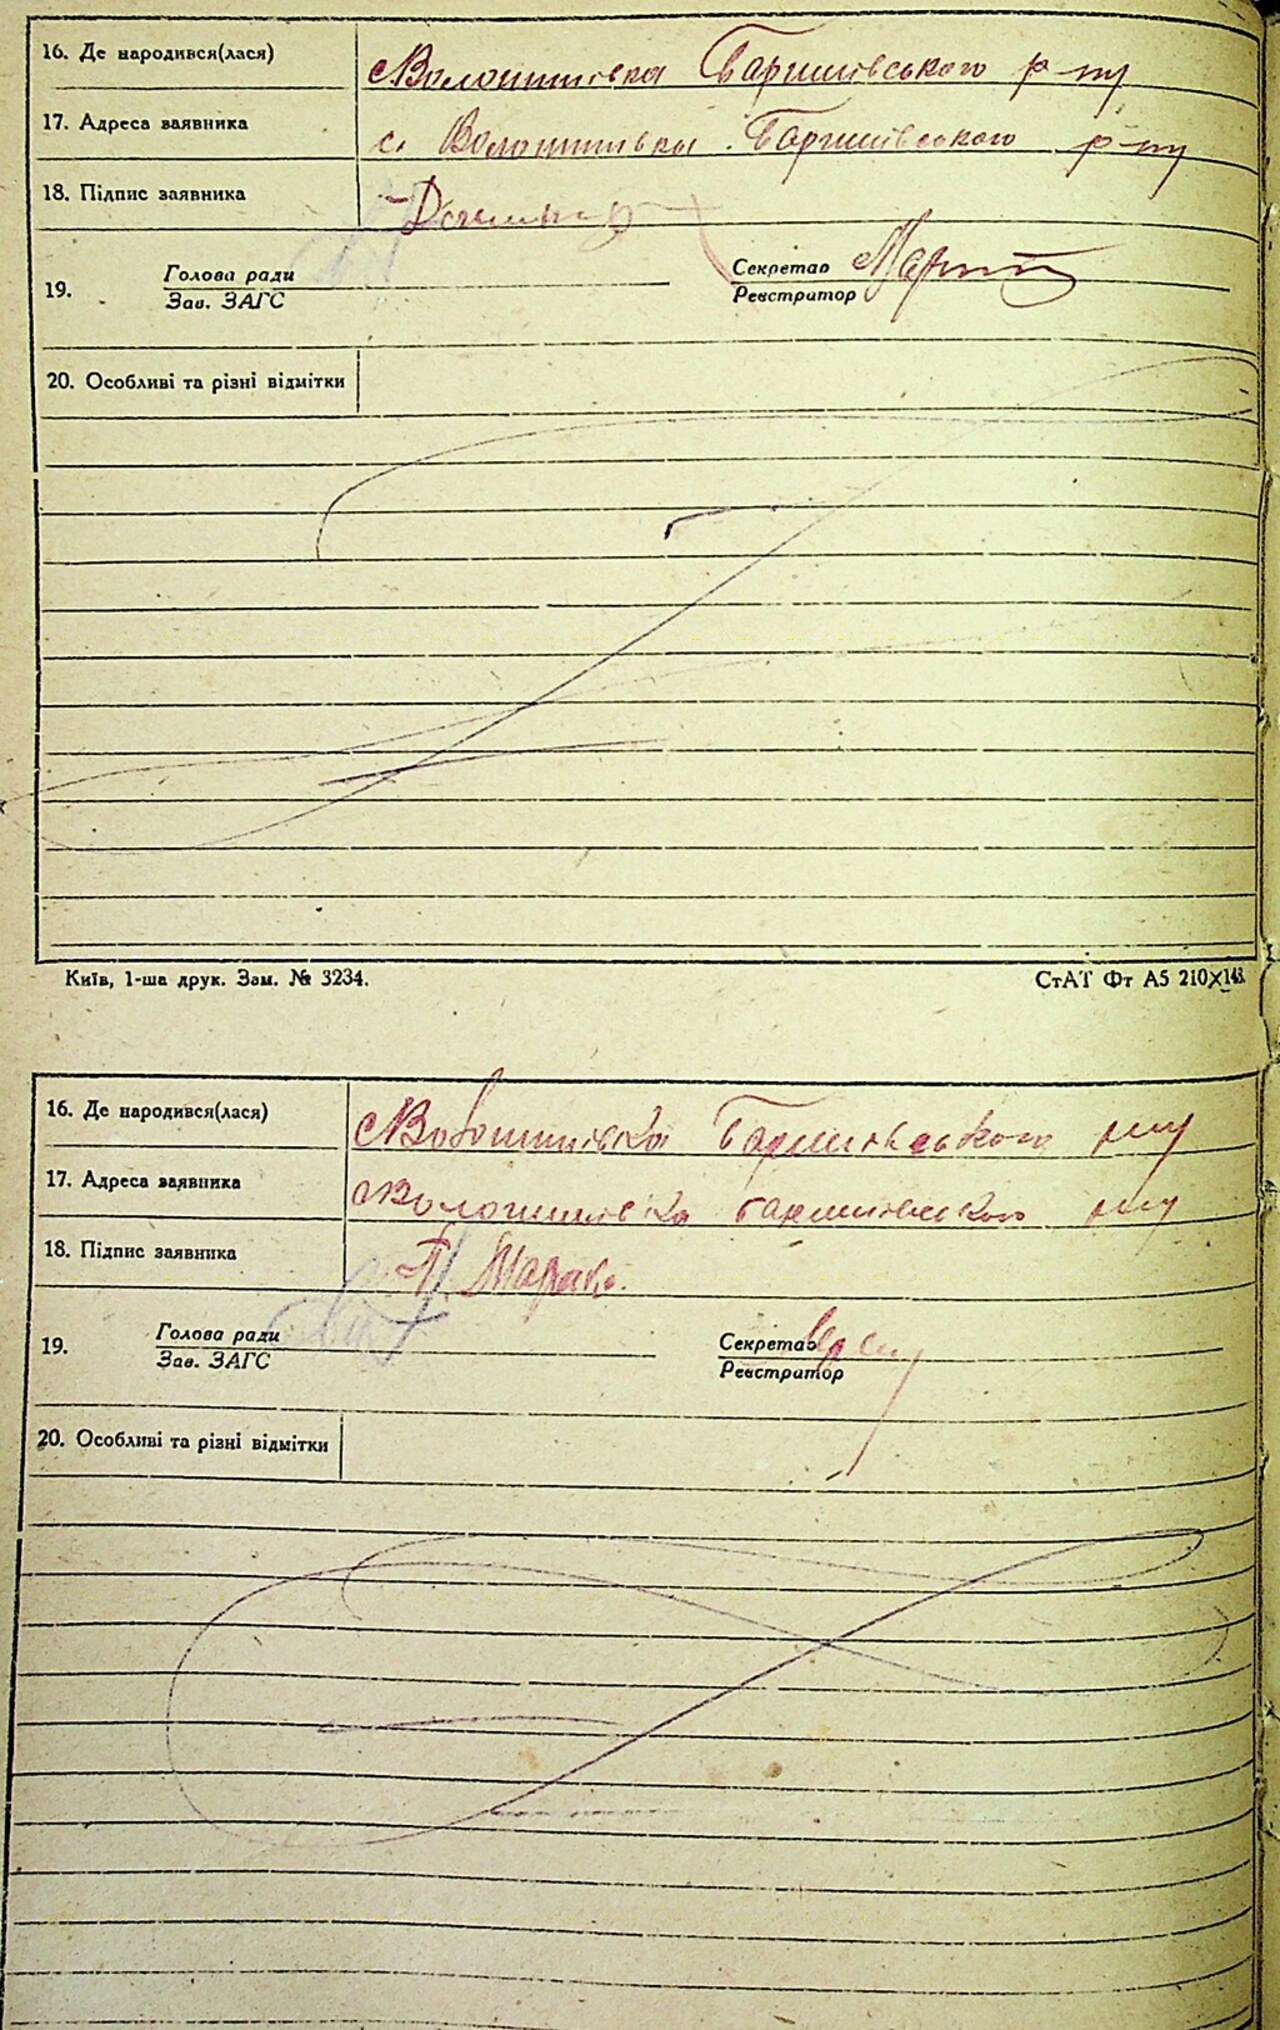 16. Де народився(лася) Волошинівка Баришівського р-ну
17. Адреса заявника с. Волошинівка Баришівського р-ну
18. Підпис заявника
19. Голова ради Секретар
Зав. ЗАГС Реєстратор
20. Особливі та різні відмітки
Київ, 1-ша друк. Зам. № 3234. СтАТ Фт А5 210X148.
16. Де народився(лася) Волошинівка Баришівського р-ну
17. Адреса заявника Волошинівка Баришівського р-ну
18. Підпис заявника
19. Голова ради Секретар
Зав. ЗАГС Реєстратор
20. Особливі та різні відмітки